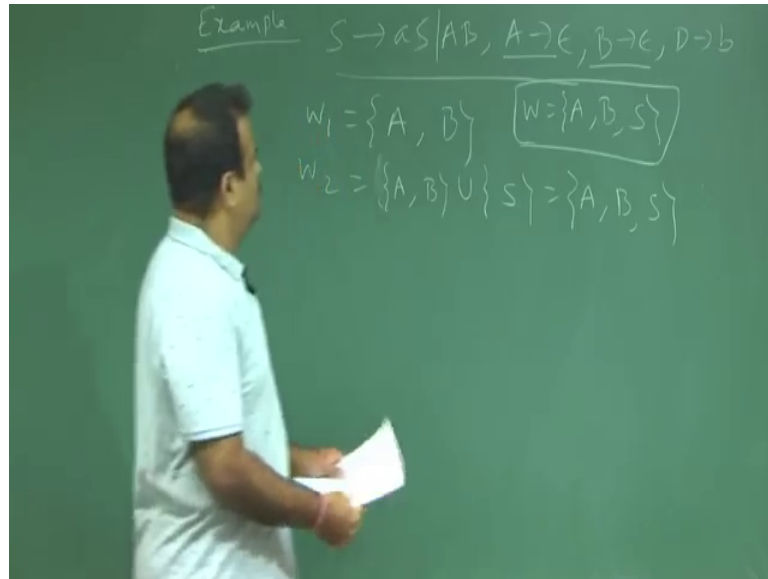 Example S → aS|AB, A → ϵ, B → ϵ, D → b
W₁ = {A, B} W = {A, B, S}
W₂ = {A, B} ∪ {S} = {A, B, S}